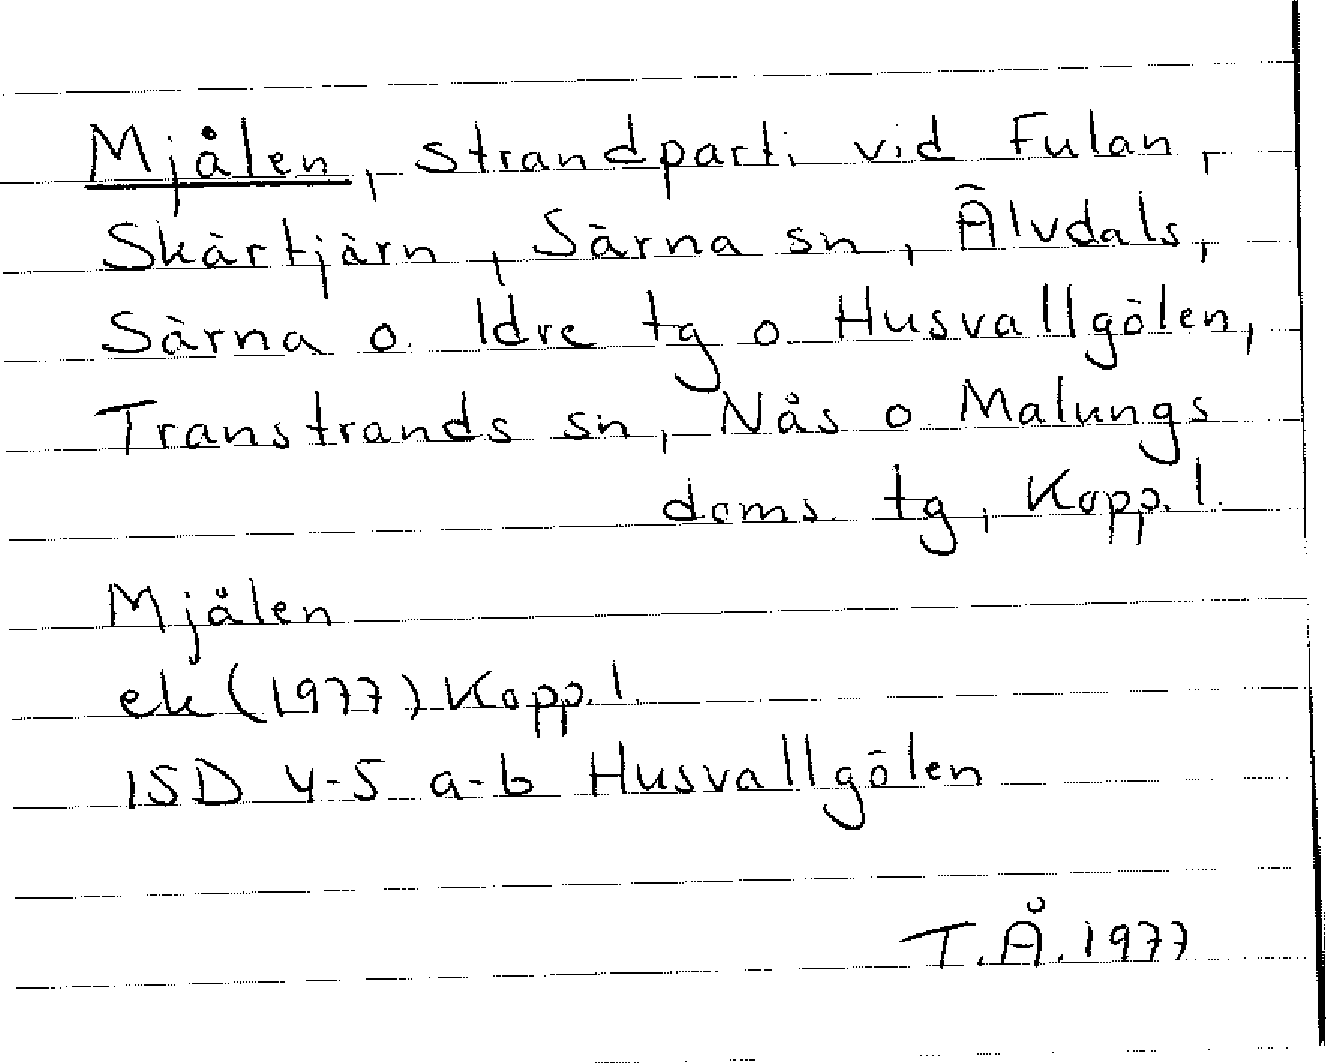 Mjålen, strandparti vid Fulan,
Skärtjärn, Särna sn, Älvdals,
Särna o. Idre tg o Husvallgölen,
Transtrands sn, Nås o Malungs
doms. tg, Kopp. l.
Mjålen
ek (1977) Kopp. l.
15D 4-5 a-b Husvallgölen
T.Å. 1977